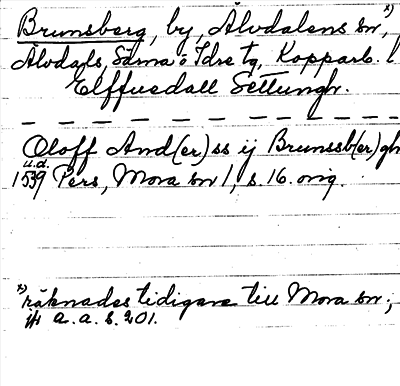 Brunsberg, by, Älvdalens sn, x)
Älvdals, Särna o Idre tg, Kopparb. l
Elffuedall Settungh.
Oloff And(er)ss ij Brunssb(er)gh
u.d.
1539 Pers, Mora sn 1, s. 16. orig.
x) räknades tidigare till Mora sn;
jfr a. a. s. 201.